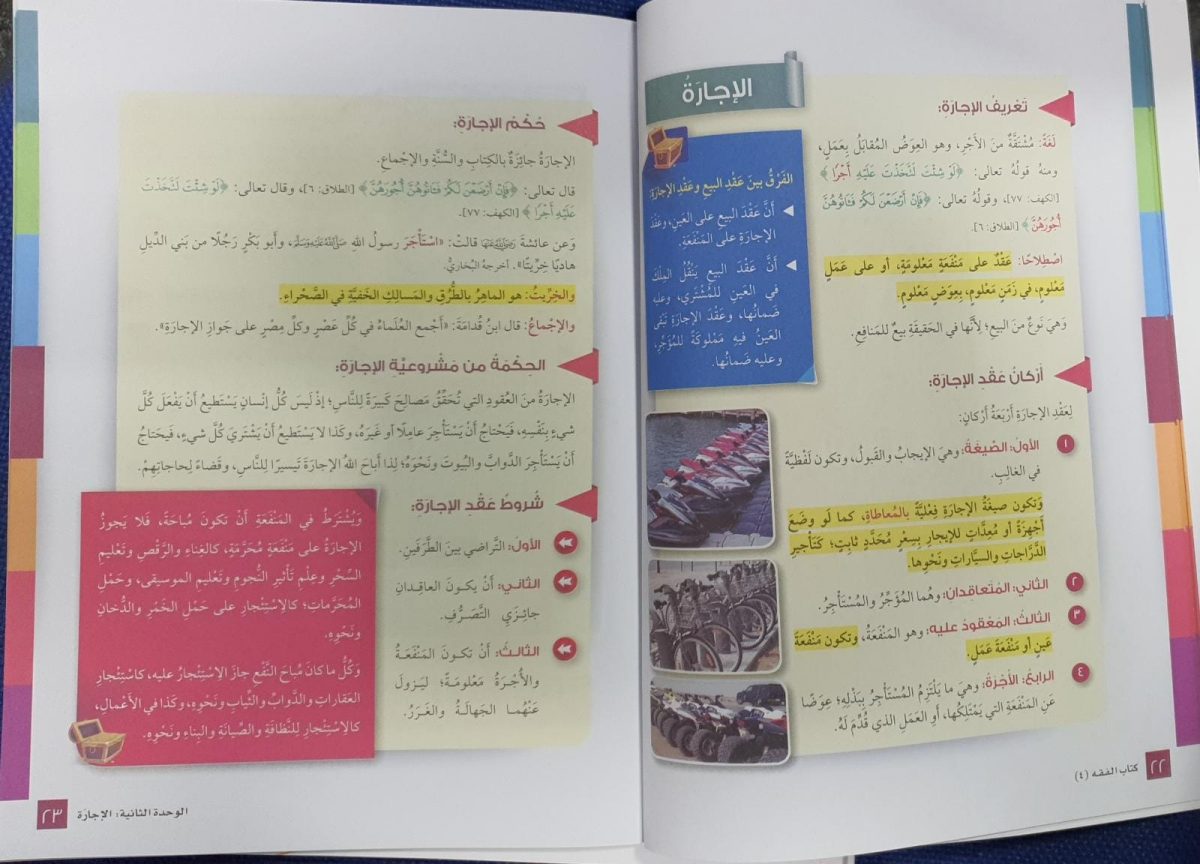 الإجارَةُ
تَعْرِيفُ الإجارَةِ:
لُغَةً: مُشْتَقَّةٌ منَ الأَجْرِ، وهو العِوَضُ المُقابَلُ بِعَمَلٍ،
ومنهُ قولُهُ تعالى: ﴿لَوْ شِئْتَ لَتَّخَذْتَ عَلَيْهِ أَجْرًا﴾
[الكهف: ٧٧]، وقولُهُ تعالى: ﴿فَإِنْ أَرْضَعْنَ لَكُمْ فَآتُوهُنَّ
أُجُورَهُنَّ﴾ [الطلاق: ٦].
اصْطِلاحًا: عَقْدٌ على مَنْفَعَةٍ مَعْلومَةٍ، أو على عَمَلٍ
مَعْلومٍ، في زَمَنٍ مَعْلومٍ، بِعِوَضٍ مَعْلومٍ.
وَهِيَ نَوْعٌ منَ البيعِ؛ لِأَنَّها في الحَقيقَةِ بيعٌ للمَنافِعِ.
الفَرْقُ بينَ عَقْدِ البيعِ وعَقْدِ الإجارَةِ:
أَنَّ عَقْدَ البيعِ على العَينِ، وعَقْدَ
الإجارَةِ على المَنْفَعَةِ.
أَنَّ عَقْدَ البيعِ يَنْقُلُ المِلْكَ
في العَينِ للمُشْتَرِي، وعليهِ
ضَمانُها، وعَقْدَ الإجارَةِ تَبْقَى
العَينُ فيهِ مَمْلوكَةً للمُؤَجِّرِ،
وعليه ضَمانُها.
أَرْكانُ عَقْدِ الإجارَةِ:
لِعَقْدِ الإجارَةِ أَرْبَعَةُ أَرْكانٍ:
١ الأَوَّلُ: الصِّيغَةُ: وهيَ الإيجابُ والقَبولُ، وتكون لَفْظِيَّةً
في الغالِبِ.
وَتكون صيغَةُ الإجارَةِ فِعْلِيَّةً بالمُعاطاةِ، كما لَو وضَعَ
أَجْهِزَةً أو مُعِدَّاتٍ للإيجارِ بِسِعْرٍ مُحَدَّدٍ ثابِتٍ؛ كَتَأْجيرِ
الدَّرَّاجاتِ والسيَّاراتِ ونَحْوِها.
٢ الثاني: المُتَعاقِدانِ: وهُما المُؤَجِّرُ والمُسْتَأْجِرُ.
٣ الثالثُ: المَعْقودُ عليه: وهو المَنْفَعَةُ، وتكون مَنْفَعَةَ
عَينٍ أو مَنْفَعَةَ عَمَلٍ.
٤ الرابعُ: الأُجْرَةُ: وهيَ ما يَلْتَزِمُ المُسْتَأْجِرُ بِبَذْلِهِ؛ عِوَضًا
عَنِ المَنْفَعَةِ التي يَمْتَلِكُها، أَوِ العَمَلِ الذي قُدِّمَ لَهُ.
٢٢ كتاب الفقه (٤)
حُكْمُ الإجارَةِ:
الإجارَةُ جائِزَةٌ بالكِتابِ والسُّنَّةِ والإجْماعِ.
قال تعالى: ﴿فَإِنْ أَرْضَعْنَ لَكُمْ فَآتُوهُنَّ أُجُورَهُنَّ﴾ [الطلاق: ٦]، وقال تعالى: ﴿لَوْ شِئْتَ لَتَّخَذْتَ
عَلَيْهِ أَجْرًا﴾ [الكهف: ٧٧].
وَعن عائشةَ رضي الله عنها قالتْ: «اسْتَأْجَرَ رسولُ اللهِ صلى الله عليه وسلم، وأَبو بَكْرٍ رَجُلًا من بَنِي الدِّيلِ
هاديًا خِرِّيتًا». أخرجهُ البُخاريُّ.
والخِرِّيتُ: هو الماهِرُ بالطُّرُقِ والمَسالِكِ الخَفِيَّةِ في الصَّحْراءِ.
والإجْماعُ: قال ابنُ قُدامَةَ: «أَجْمع العُلَماءُ في كُلِّ عَصْرٍ وكلِّ مِصْرٍ على جَوازِ الإجارَةِ».
الحِكْمَةُ من مَشْروعِيَّةِ الإجارَةِ:
الإجارَةُ منَ العُقودِ التي تُحَقِّقُ مَصالِحَ كَبيرَةً للنَّاسِ؛ إذْ لَيسَ كُلُّ إنْسانٍ يَسْتَطيعُ أَنْ يَفْعَلَ كُلَّ
شيءٍ بِنَفْسِهِ، فَيَحْتاجُ أَنْ يَسْتَأْجِرَ عامِلًا أو غَيرَهُ، وكَذا لا يَسْتَطيعُ أَنْ يَشْتَرِيَ كُلَّ شيءٍ، فَيَحتاجُ
أَنْ يَسْتَأْجِرَ الدَّوابَّ والبُيوتَ ونَحْوَهُ؛ لِذا أَباحَ اللهُ الإجارَةَ تَيسيرًا للنَّاسِ، وقَضاءً لِحاجاتِهِمْ.
شُروطُ عَقْدِ الإجارَةِ:
الأَوَّلُ: التَّراضي بينَ الطَّرَفَينِ.
الثاني: أَنْ يكـونَ العاقِـدانِ
جائِـزَيِ التَّصَـرُّفِ.
الثالثُ: أَنْ تكـونَ المَنْفَعَـةُ
والأُجْـرَةُ مَعْلومَةً؛ ليَزولَ
عَنْهُما الجَهالَةُ والغَرَرُ.
وَيُشْتَرَطُ في المَنْفَعَةِ أَنْ تكونَ مُباحَةً، فَلا يَجوزُ
الإجارَةُ على مَنْفَعَةٍ مُحَرَّمَةٍ، كالغِناءِ والرَّقْصِ وتَعْليمِ
السِّحْرِ وعِلْمِ تَأْثيرِ النُّجومِ وتَعْليمِ الموسيقى، وحَمْلِ
المُحَرَّماتِ؛ كالاِسْتِئْجارِ على حَمْلِ الخَمْرِ والدُّخانِ
ونَحْوِهِ.
وَكُلُّ ما كانَ مُباحَ النَّفْعِ جازَ الاِسْتِئْجارُ عليه، كاسْتِئْجارِ
العقاراتِ والدَّوابِّ والثِّيابِ ونَحْوِهِ، وكَذا في الأَعْمالِ،
كالاِسْتِئْجارِ للنَّظافَةِ والصِّيانَةِ والبِناءِ ونَحْوِهِ.
الوحدة الثانية: الإجارَة ٢٣